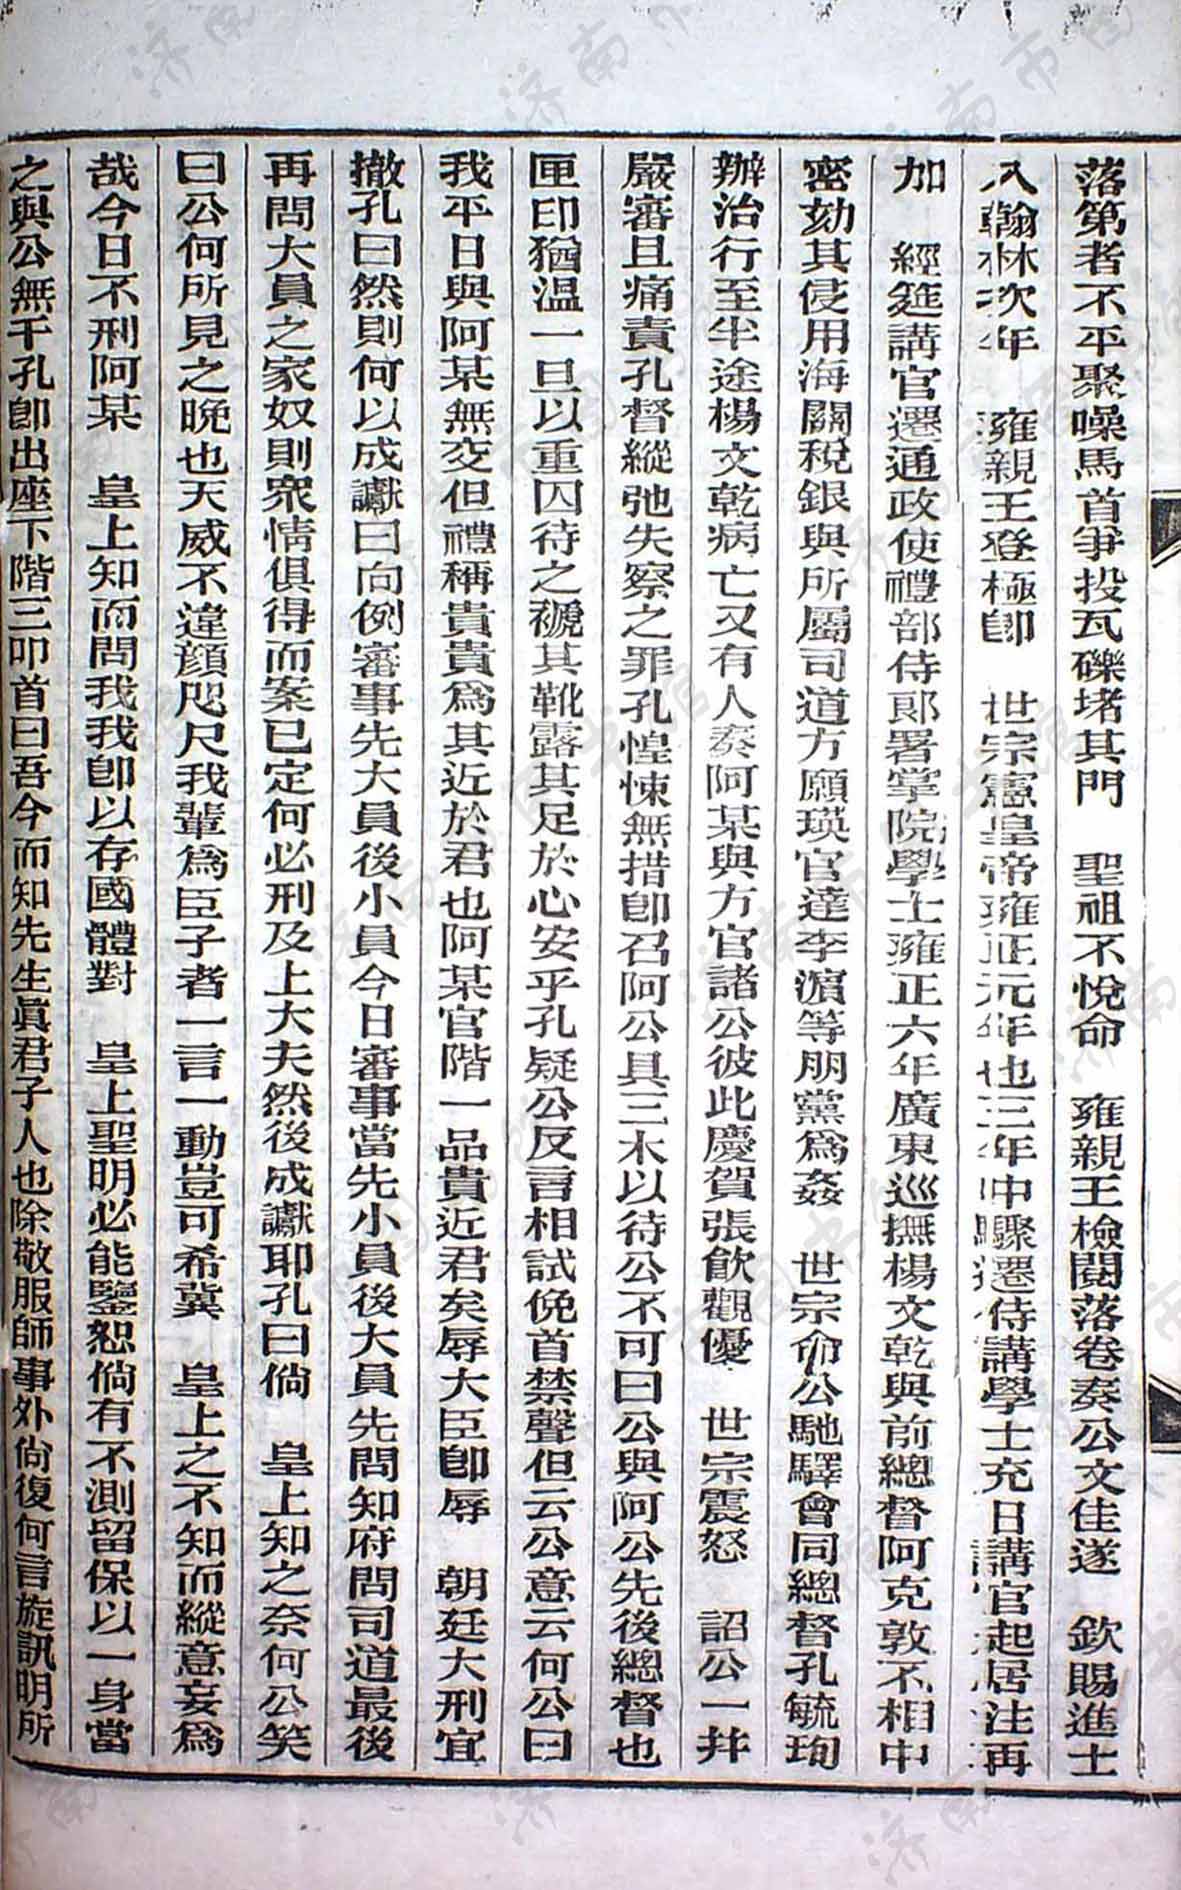 落第者不平聚噪馬首爭投瓦礫堵其門　聖祖不悅命　雍親王檢閱落卷奏公文佳遂　欽賜進士
入翰林次年　雍親王登極卽　世宗憲皇帝雍正元年也三年中驟遷侍講學士充日講官起居注再
加　經筵講官遷通政使禮部侍郞署掌院學士雍正六年廣東巡撫楊文乾與前總督阿克敦不相中
密劾其侵用海關稅銀與所屬司道方願瑛官達李濵等朋黨爲姦　世宗命公馳驛會同總督孔毓珣
辦治行至半途楊文乾病亡又有人奏阿某與方官諸公彼此慶賀張飮觀優　世宗震怒　詔公一幷
嚴審且痛責孔督縱弛失察之罪孔惶悚無措卽召阿公具三木以待公不可曰公與阿公先後總督也
匣印猶溫一旦以重囚待之褫其靴露其足於心安乎孔疑公反言相試俛首禁聲但云公意云何公曰
我平日與阿某無交但禮稱貴貴爲其近於君也阿某官階一品貴近君矣辱大臣卽辱　朝廷大刑宜
撤孔曰然則何以成讞曰向例審事先大員後小員今日審事當先小員後大員先問知府問司道最後
再問大員之家奴則衆情俱得而案已定何必刑及上大夫然後成讞耶孔曰倘　皇上知之奈何公笑
曰公何所見之晚也天威不違顏咫尺我輩爲臣子者一言一動豈可希冀　皇上之不知而縱意妄爲
哉今日不刑阿某　皇上知而問我我卽以存國體對　皇上聖明必能鑒恕倘有不測留保以一身當
之與公無干孔卽出座下階三叩首曰吾今而知先生眞君子人也除敬服師事外尙復何言旋訊明所